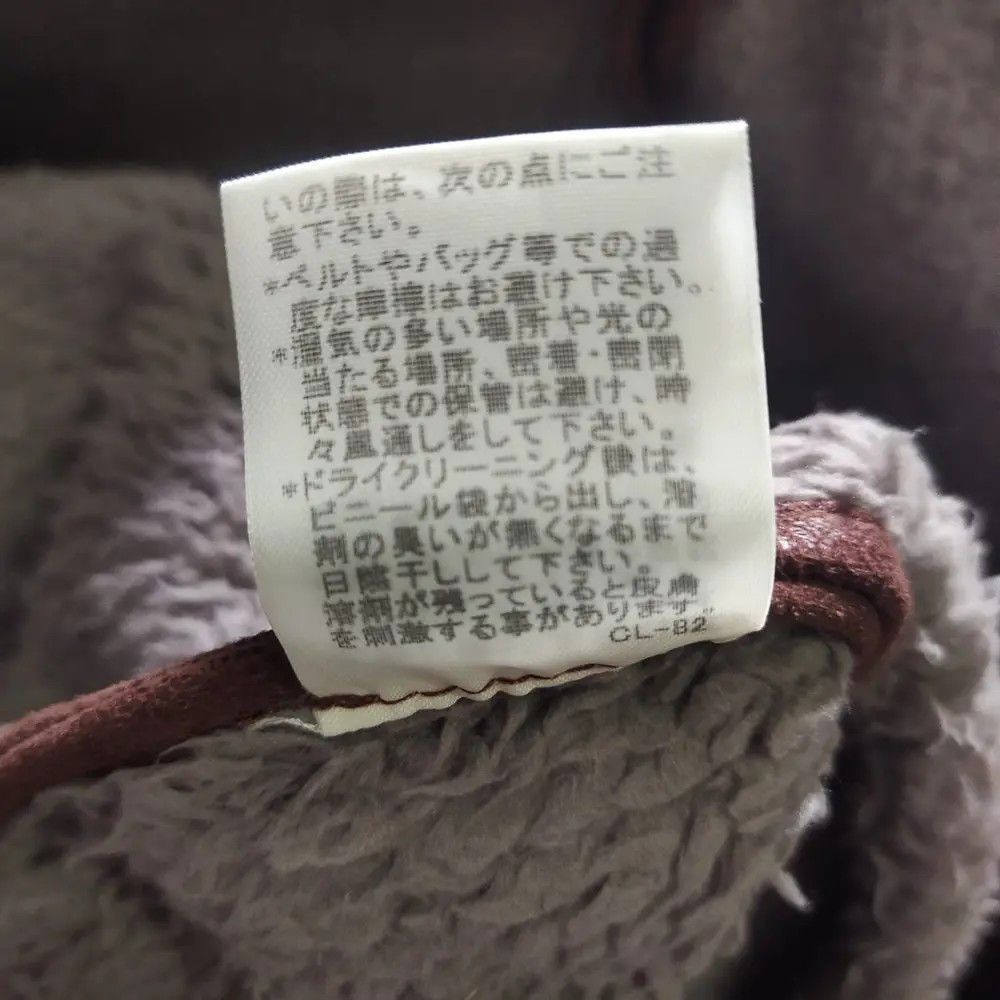 いの際は、次の点にご注
意下さい。
*ベルトやバッグ等での過
度な摩擦はお避け下さい。
*湿気の多い場所や光の
当たる場所、密着・密閉
状態での保管は避け、時
々風通しをして下さい。
*ドライクリーニング後は、
ビニール袋から出し、溶
剤の臭いが無くなるまで
日陰干しして下さい。
溶剤が残っていると皮膚
を刺激する事があります。
CL-82